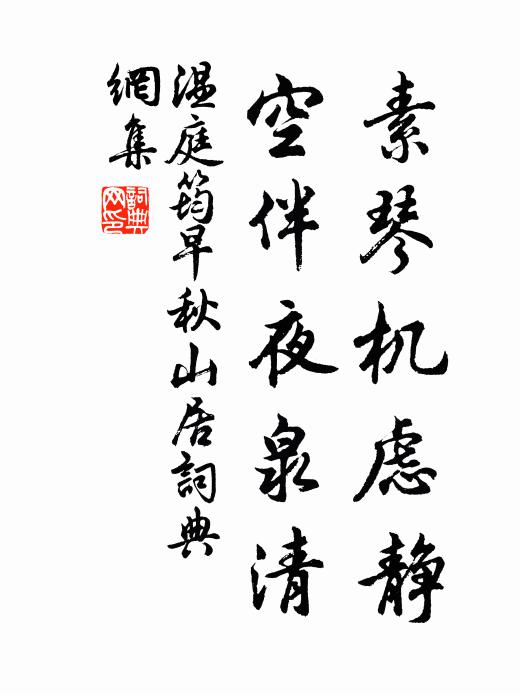 素琴机慮静
空伴夜泉清
温庭筠早秋山居詞典
網集
詞典網印